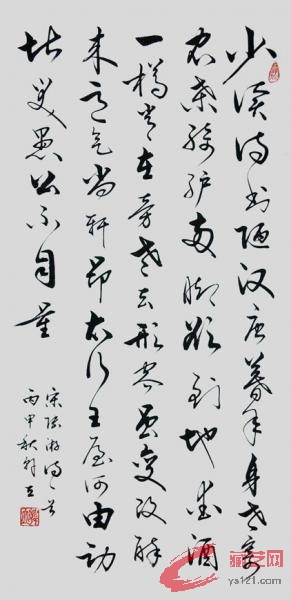 少读诗书陋汉唐暮年身世寄
农桑骑驴两脚欲到地爱酒
一樽常在旁老去形容虽变改醉
来意气尚轩昂太行王屋何由动
堪笑愚公不自量
宋陆游诗一首
丙申秋
藏艺网
ys121.com